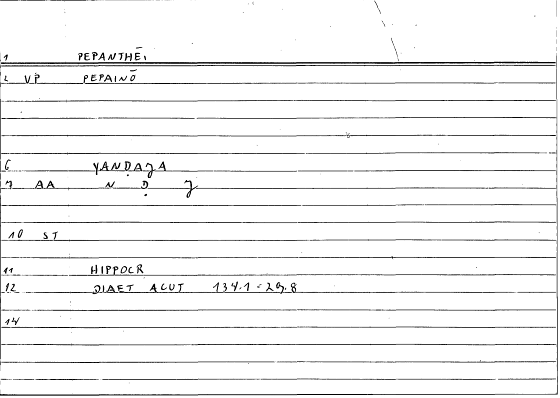 1 PEPANTHĒI
2 VP PEPAINŌ
6 YANḌAJA
7 AA N Ḍ J
10 ST
11 HIPPOCR
12 DIAET ACUT 134.1 = 29.8
14